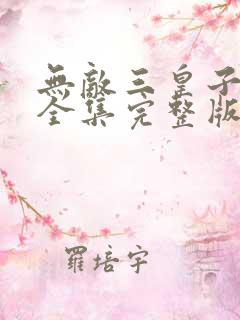 無敵三皇子
全集完整版
羅培宇